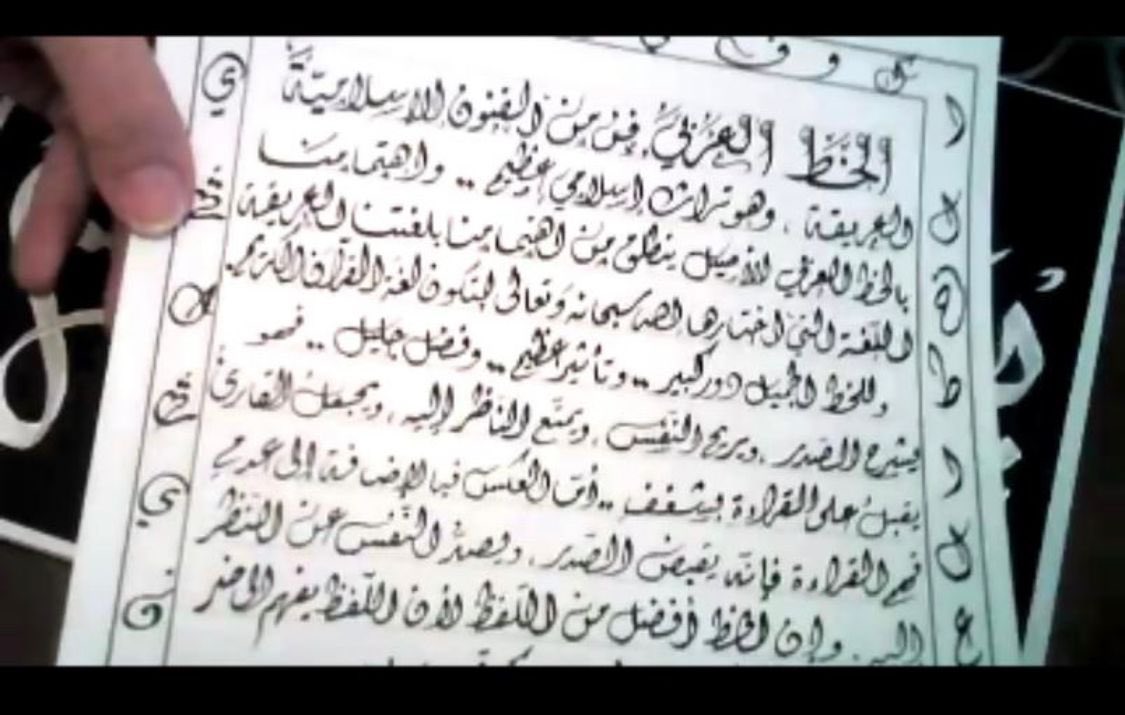 الخط العربي، فن من الفنون الإسلاميّةُ
العريقة، وهو تراث إسلامي عظيم .. واهتمامنا
بالخط العربي الأصيل ينطلق من اهتمامنا بلغتنا العريقة
اللغة التي اختارها الله سبحانه وتعالى لتكون لغة القرآن الكريم.
وللخط الجميل دور كبير .. وتأثير عظيم .. وفضل جليل .. فهو
يشرح الصدر، ويريح النفس، ويمتّع الناظر إليه، ويجعل القارئ
يقبل على القراءة بشغف .. أمّا العكس فبالإضافة إلى عدم
فهم القراءة فإنه يقبض الصّدر، ويصدّ النّفس عن النّظر
إليه. وإن الخط أفضل من اللّفظ لأن اللّفظ يفهم الحاضر